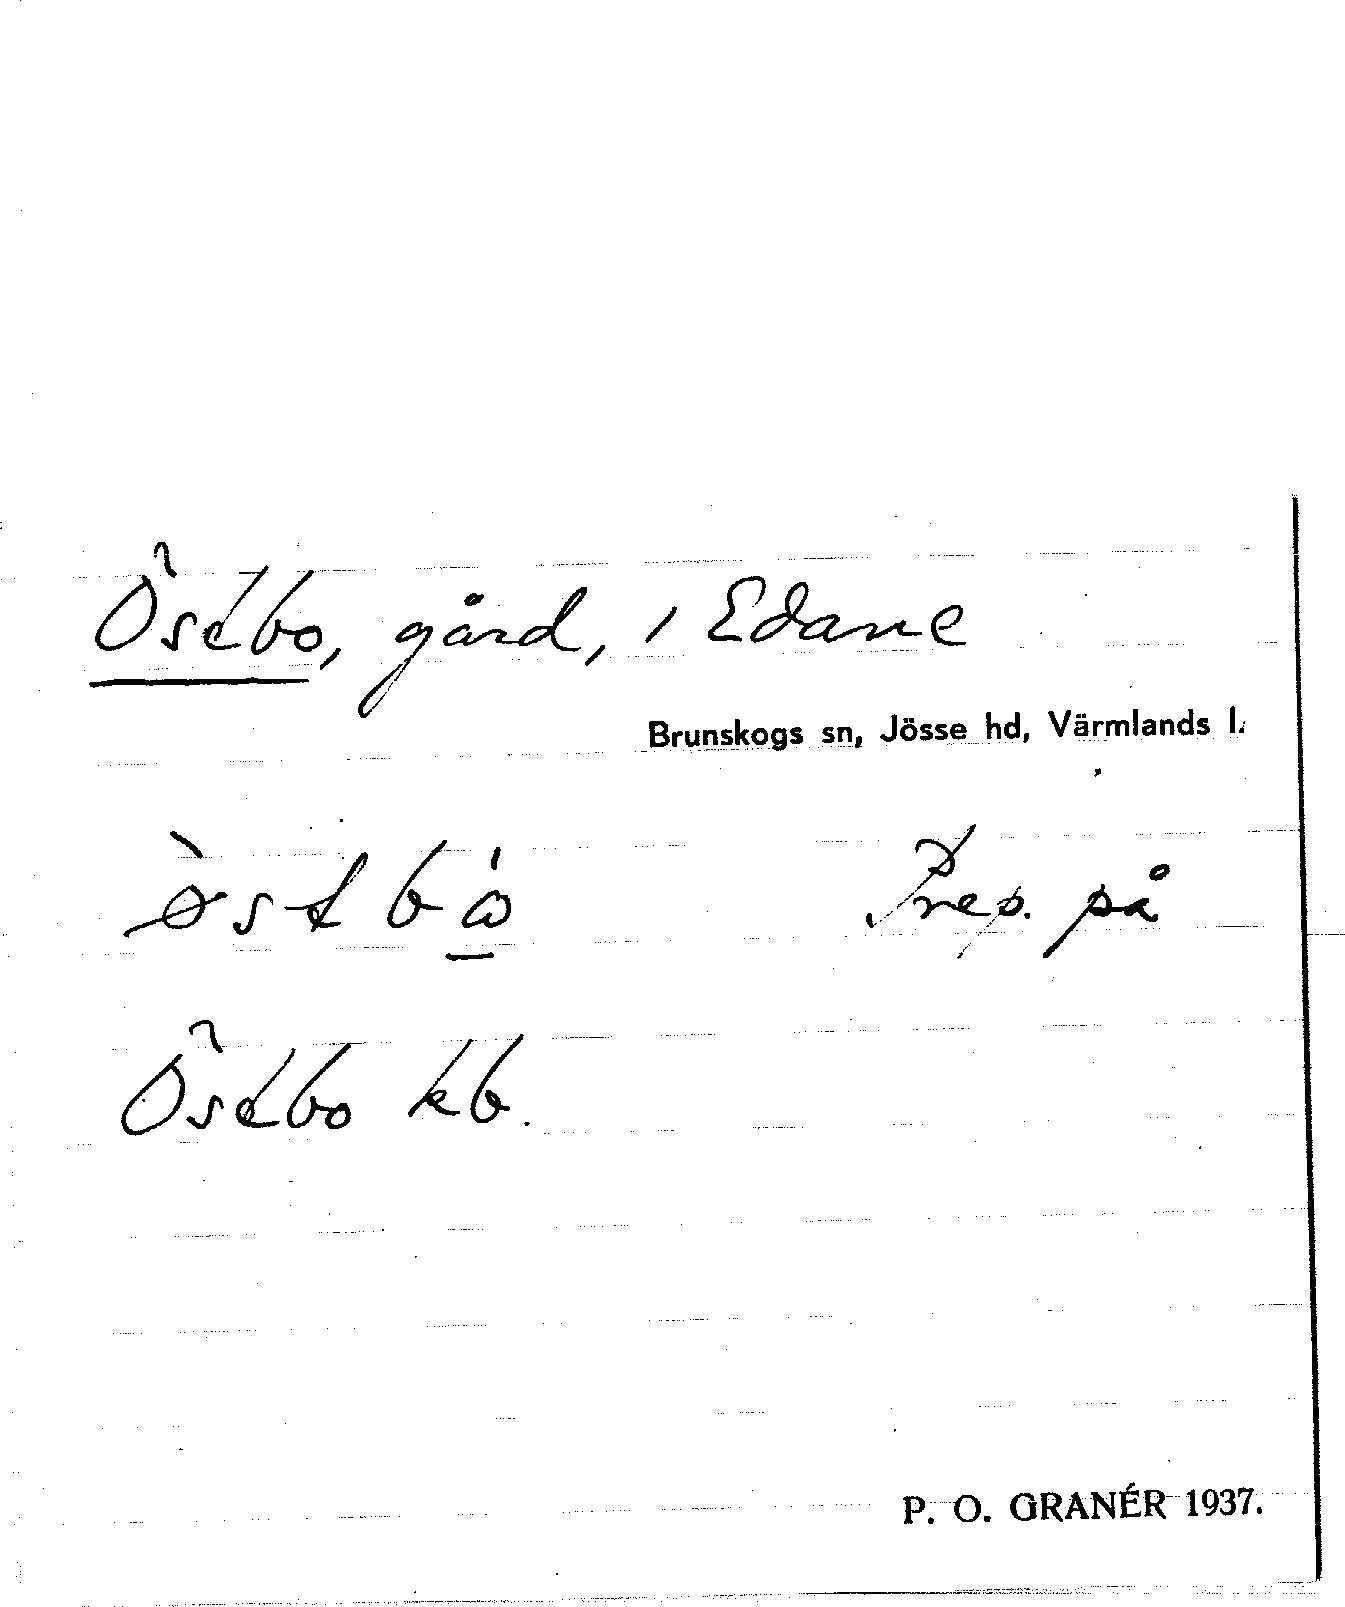 Östbo, gård, i Edane
Brunskogs sn, Jösse hd, Värmlands l.
Prep. på
Östbo kb.
P. O. GRANÉR 1937.